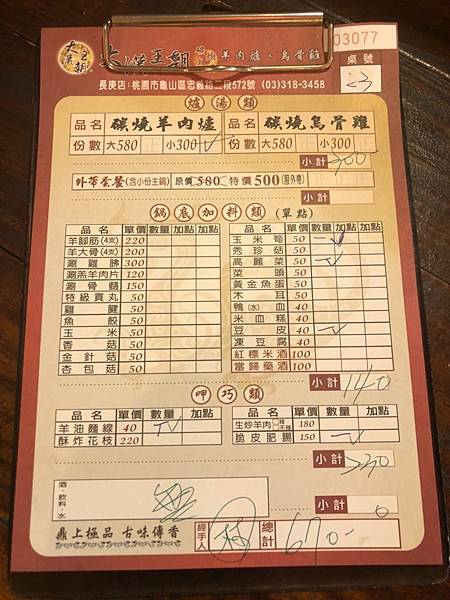 大漢王朝 炭燒羊肉爐、烏骨雞
03077
桌號
23
長庚店:桃園市龜山區忠義路二段572號 (03)318-3458
爐湯類
品名 碳燒羊肉爐 品名 碳燒烏骨雞
份數 大580 小300 份數 大580 小300
小計 300
外帶套餐(含小份主鍋) 原價580 特價500(限外帶)
鍋底加料類(單點)
品名 單價 數量 加點 加點 品名 單價 數量 加點 加點
羊腳筋(4支) 220 玉米筍 50 一
羊大骨(4支) 200 秀珍菇 50
涮雞胇 300 高麗菜 50 一
涮羔羊肉片 120 菜頭 50
涮骨髓 150 黃金魚蛋 50
特級貢丸 50 木耳 50
雞腱 50 鴨(水)血 40
魚餃 50 米血糕 40
玉米 50 豆皮 40 一
香菇 50 凍豆腐 40
金針菇 50 紅標米酒 100
杏包菇 50 當歸藥酒 100
小計 140
呷巧類
品名 單價 數量 加點 品名 單價 數量 加點
羊油麵線 40 生炒羊肉 辣 不辣 180
酥炸花枝 220 脆皮肥腸 150 一
小計 230
酒、飲料、水
小計 0
鼎上極品 古味傳香 經手人 總計 670-